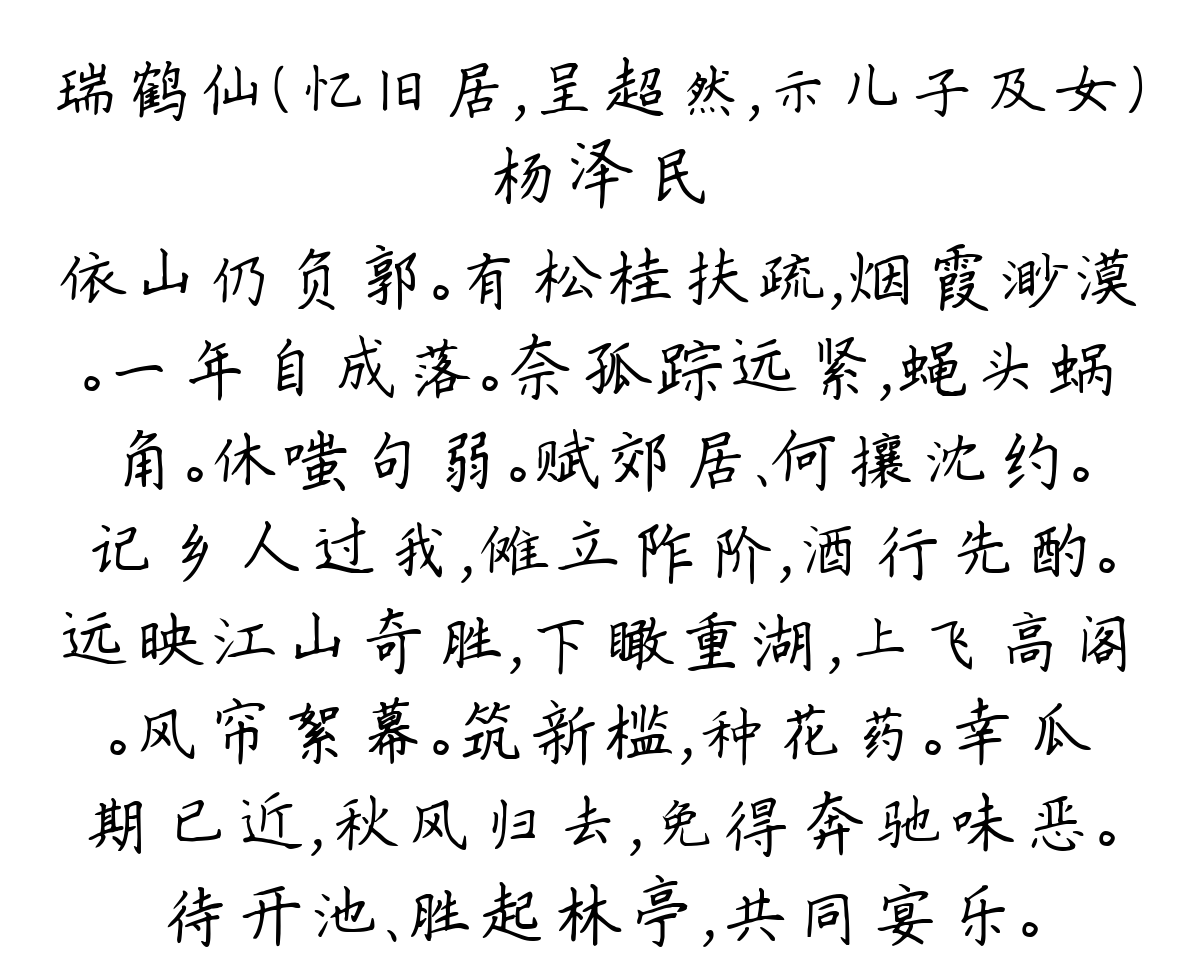 瑞鹤仙(忆旧居,呈超然,示儿子及女)
杨泽民
依山仍负郭。有松桂扶疏,烟霞渺漠
。一年自成落。奈孤踪远紧,蝇头蜗
角。休嗤句弱。赋郊居、何攘沈约。
记乡人过我,傩立阼阶,酒行先酌。
远映江山奇胜,下瞰重湖,上飞高阁
。风帘絮幕。筑新槛,种花药。幸瓜
期已近,秋风归去,免得奔驰味恶。
待开池、胜起林亭,共同宴乐。